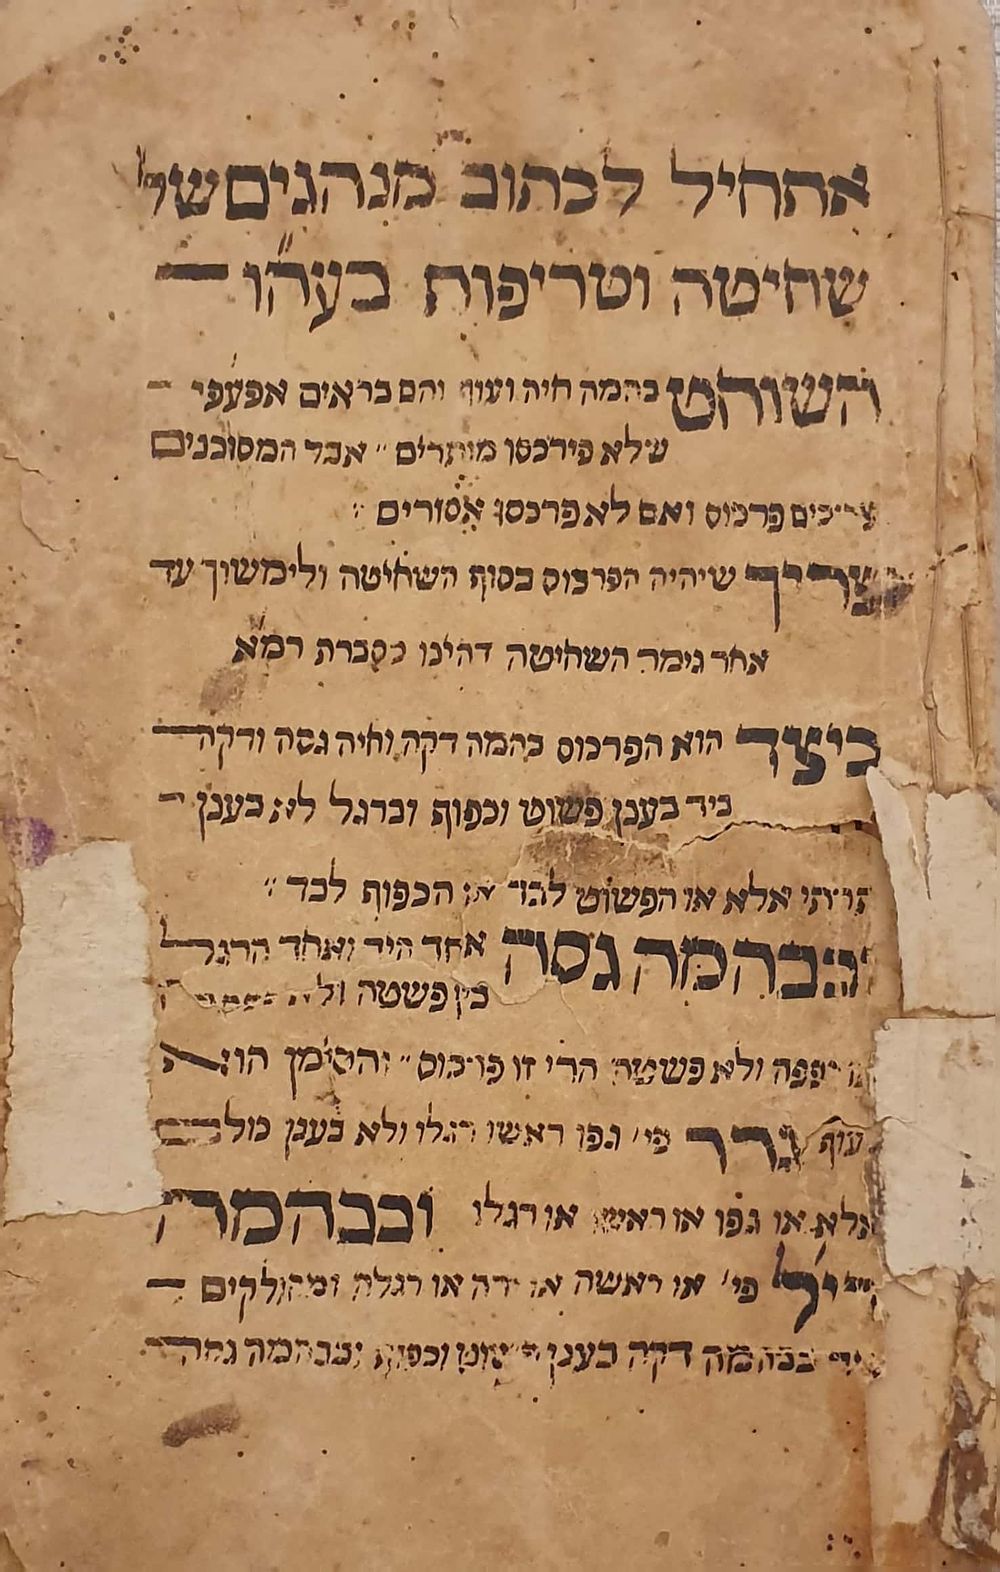 אתחיל לכתוב מנהגים של
שחיטה וטריפות בעה״ו
השוחט בהמה חיה ועוף והם בראים אפעפי
שלא פירכסו מותרים ״ אבל המסוכנים
צריכים פרכוס ואם לא פרכסו אסורים
וצריך שיהיה הפרכוס בסוף השחיטה ולימשוך עד
אחר גימר השחיטה דהינו כסברת רמ״א
כיצד הוא הפרכוס בהמה דקה וחיה גסה ודקה
ביד בענן פשוט וכפוף וברגל לא בענן
תרתי אלא או הפשוט לבד או הכפוף לבד ״
ובבהמה גסה אחד היד ואחד הרגל
בין פשטה ולא
כפפה ולא פשטה הרי זו פרכוס ״ והסימן הוא
עוף גרר פי׳ גפו ראשו רגלו ולא בענן כולם
אלא או גפו או ראשו או רגלו ובבהמה
פי׳ או ראשה או ידה או רגלה ומחולקים
ביד בבהמה דקה בענן פשוט וכפוף ובבהמה גסה